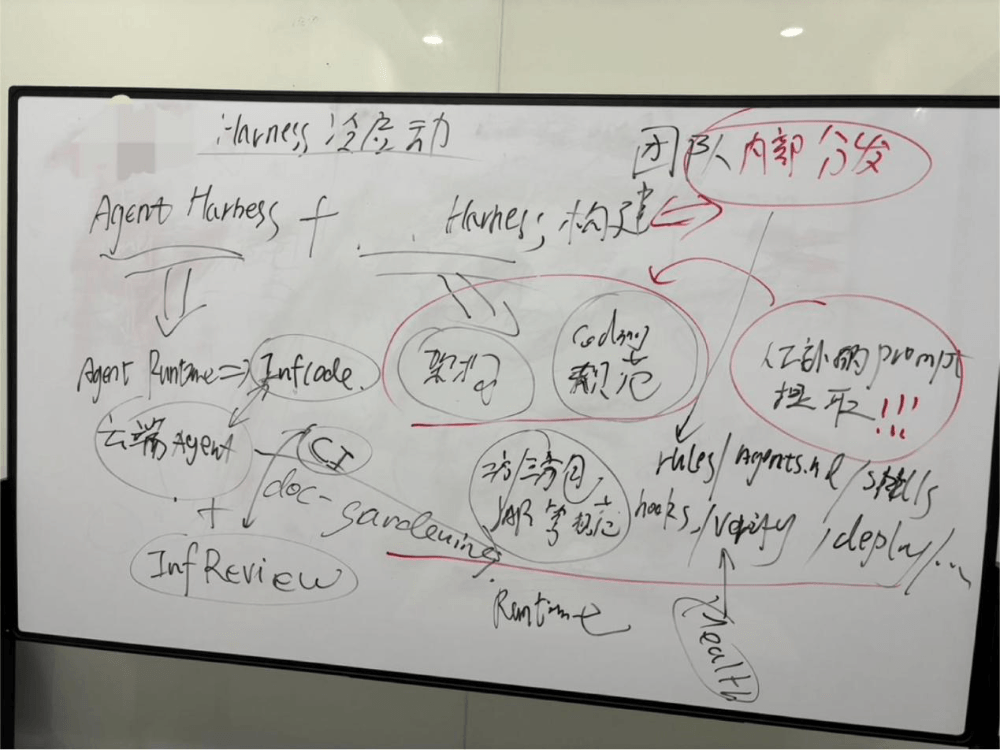 Harness 冷启动
团队内部分发
Agent Harness + .. Harness 构建
Agent Runtime => Infcode.
架构
Coding
规范
prompt
提取!!!
云端Agent
CI
doc-gardening
+
InfReview
JAR 等规范
rules/Agents.md/skills
hooks/verify/deploy/...
Runtime
health